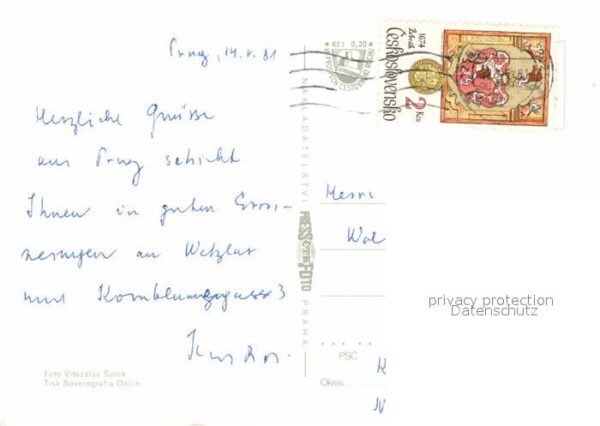 Prag, 14.V.81
Herzliche Grüsse
aus Prag schickt
Ihnen in guten Erin-
nerungen an Wetzlar
und Kornblumengasse 3
Foto Vítězslav Šolek
Tisk Severografia Děčín
Kčs 0,20
NAKLADATELSTVÍ
PRESSFOTO
PRAHA
1674
Československo
2 Kčs
Herrn
Wal
PSČ
K
Okres:
privacy protection
Datenschutz